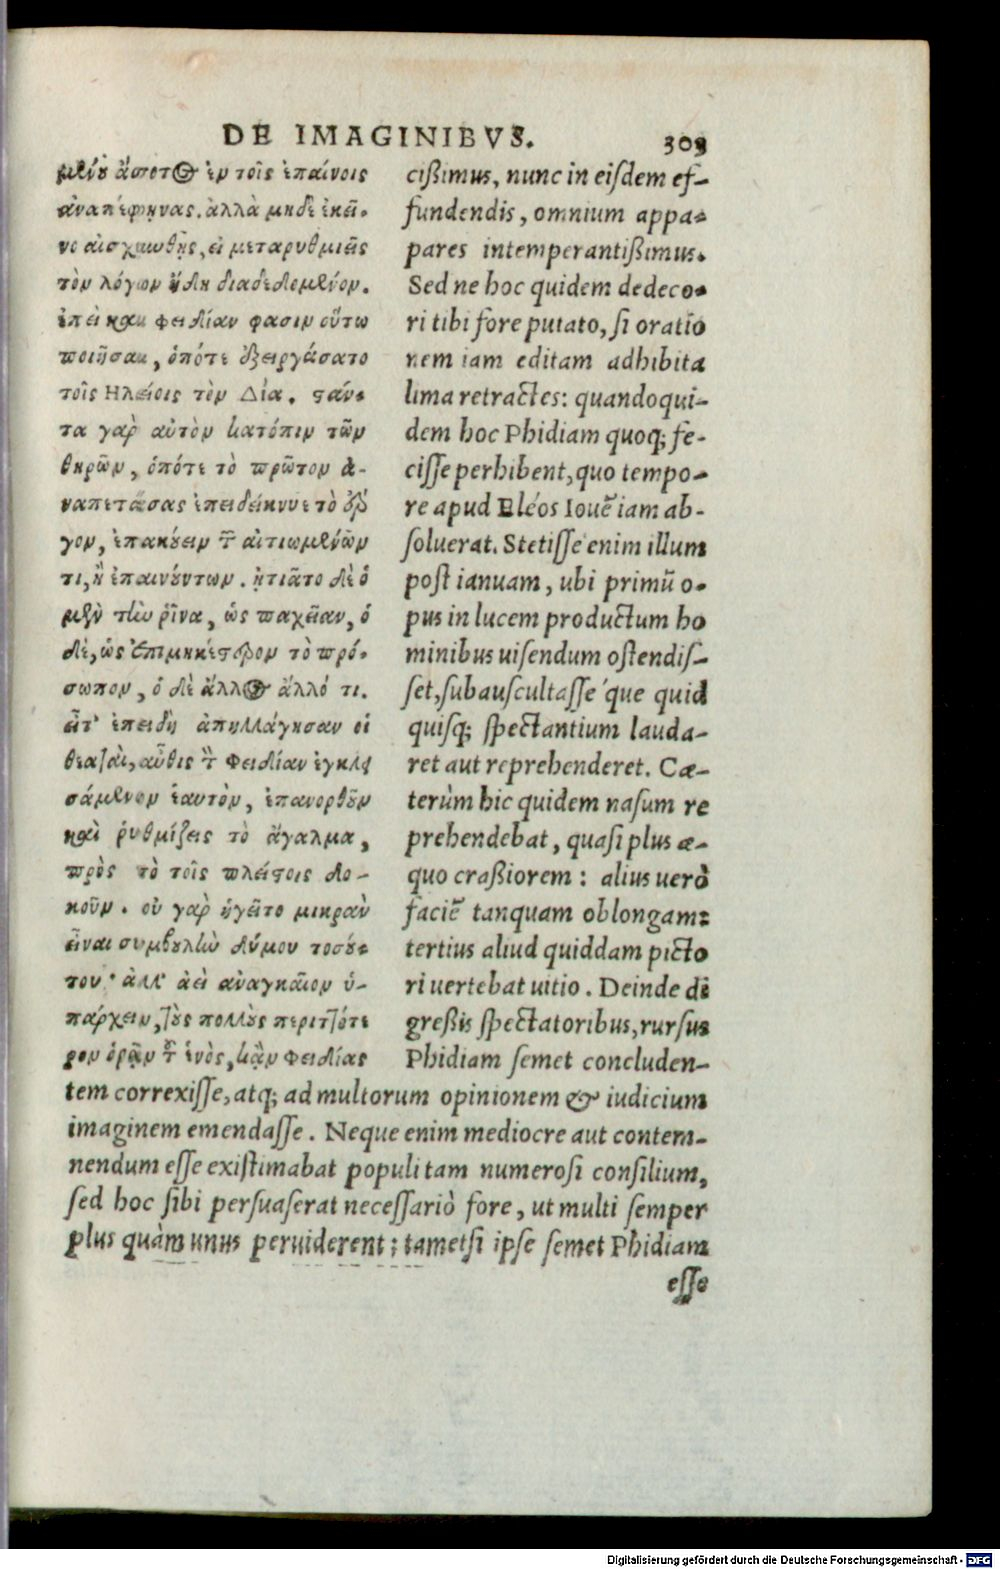 DE IMAGINIBVS. 309
μλύου ἄσωτος ἐν τοῖς ἐπαίνοις
ἀναπέφηνας. ἀλλὰ μηδὲ ἐκεῖ-
νο αἰσχυνθῇς, εἰ μεταρυθμιεῖς
τὸν λόγον ἤδη διαδεδομένον.
ἐπεὶ καὶ φειδίαν φασὶν οὕτω
ποιῆσαι, ὁπότε ἐξειργάσατο
τοῖς Ηλείοις τὸν Δία. στάν-
τα γὰρ αὐτὸν κατόπιν τῶν
θυρῶν, ὁπότε τὸ πρῶτον ἀ-
ναπετάσας ἐπεδείκνυε τὸ ἔρ
γον, ἐπακούειν τῶν αἰτιωμένων
τι, ἢ ἐπαινούντων. ᾐτιᾶτο δὲ ὁ
μὲν τὴν ῥῖνα, ὡς παχεῖαν, ὁ
δὲ, ὡς ἐπιμηκέστερον τὸ πρό-
σωπον, ὁ δὲ ἄλλος ἄλλό τι.
εἶτ' ἐπειδὴ ἀπηλλάγησαν οἱ
θεαταὶ, αὖθις τὸν Φειδίαν ἐγκλει
σάμενον ἑαυτὸν, ἐπανορθοῦν
καὶ ῥυθμίζειν τὸ ἄγαλμα,
πρὸς τὸ τοῖς πλείστοις δο-
κοῦν. οὐ γὰρ ἡγεῖτο μικρὰν
εἶναι συμβουλὴν δήμου τοσού-
του· ἀλλ' ἀεὶ ἀναγκαῖον ὑ-
πάρχειν, τοὺς πολλοὺς περιττότε
ρον ὁρᾷν τοῦ ἑνὸς, κἂν Φειδίας
cißimus, nunc in eisdem ef-
fundendis, omnium appa-
pares intemperantißimus.
Sed ne hoc quidem dedeco-
ri tibi fore putato, si oratio
nem iam editam adhibita
lima retractes: quandoqui-
dem hoc Phidiam quoq; fe-
cisse perhibent, quo tempo-
re apud Eléos Iouẽ iam ab-
soluerat. Stetisse enim illum
post ianuam, ubi primũ o-
pus in lucem productum ho
minibus uisendum ostendis-
set, subauscultasse´que quid
quisq; spectantium lauda-
ret aut reprehenderet. Cæ-
terùm hic quidem nasum re
prehendebat, quasi plus æ-
quo craßiorem: alius uerò
faciẽ tanquam oblongam:
tertius aliud quiddam picto
ri uertebat uitio. Deinde di
greßis spectatoribus, rursus
Phidiam semet concluden-
tem correxisse, atq; ad multorum opinionem & iudicium
imaginem emendasse. Neque enim mediocre aut contem-
nendum esse existimabat populi tam numerosi consilium,
sed hoc sibi persuaserat necessariò fore, ut multi semper
plus quàm unus peruiderent; tametsi ipse semet Phidiam
esse
Digitalisierung gefördert durch die Deutsche Forschungsgemeinschaft - DFG